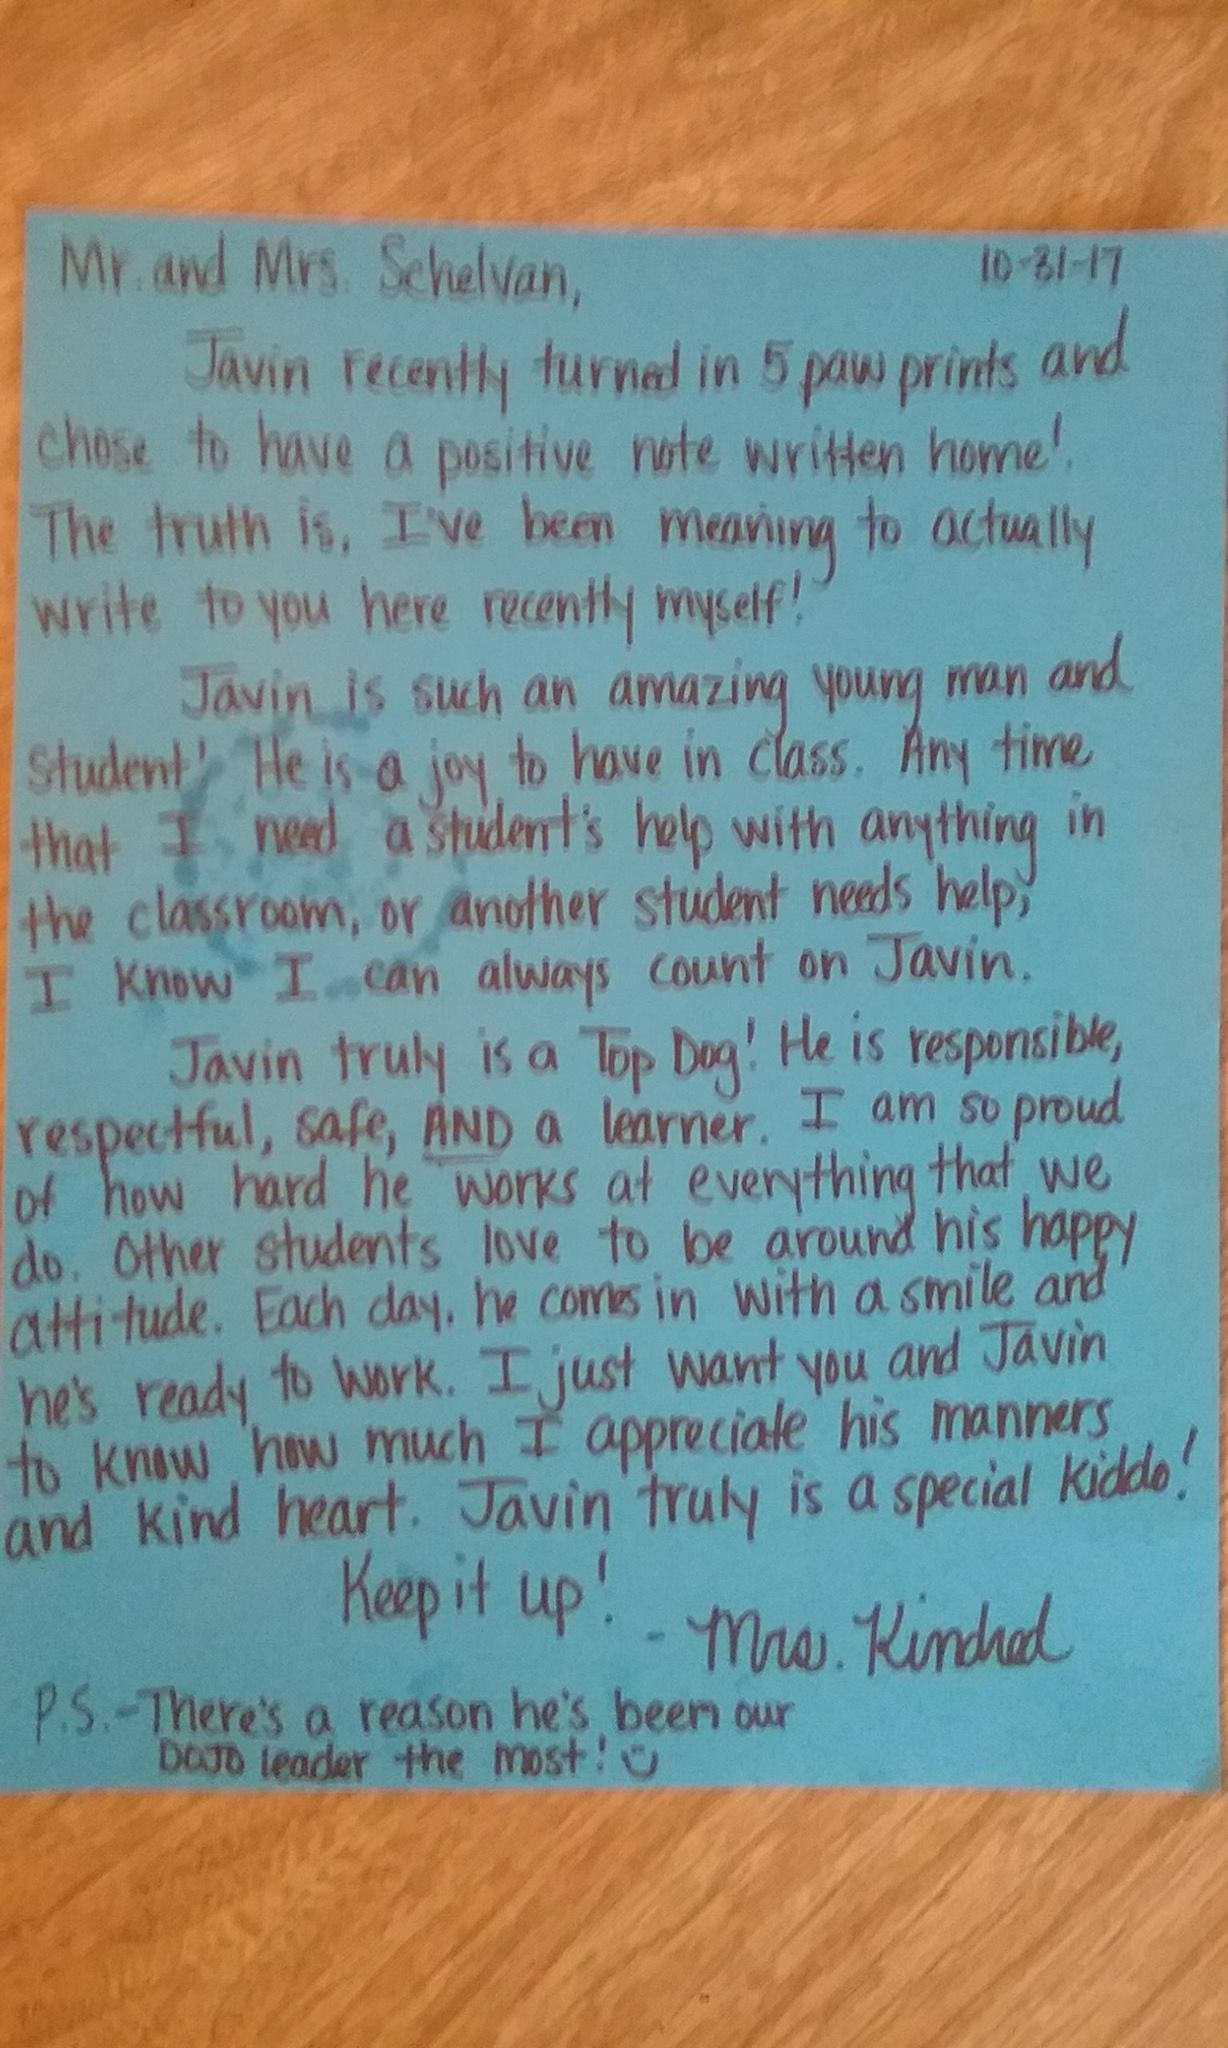 Mr. and Mrs. Schelvan,
10-31-17
Javin recently turned in 5 paw prints and
chose to have a positive note written home!
The truth is, I've been meaning to actually
write to you here recently myself!
Javin is such an amazing young man and
student! He is a joy to have in class. Any time
that I need a student's help with anything in
the classroom, or another student needs help,
I know I can always count on Javin.
Javin truly is a Top Dog! He is responsible,
respectful, safe, AND a learner. I am so proud
of how hard he works at everything that we
do. Other students love to be around his happy
attitude. Each day, he comes in with a smile and
he's ready to work. I just want you and Javin
to know how much I appreciate his manners
and kind heart. Javin truly is a special kiddo!
Keep it up!
- Mrs. Kindred
P.S.- There's a reason he's been our
DOJO leader the most! ☺